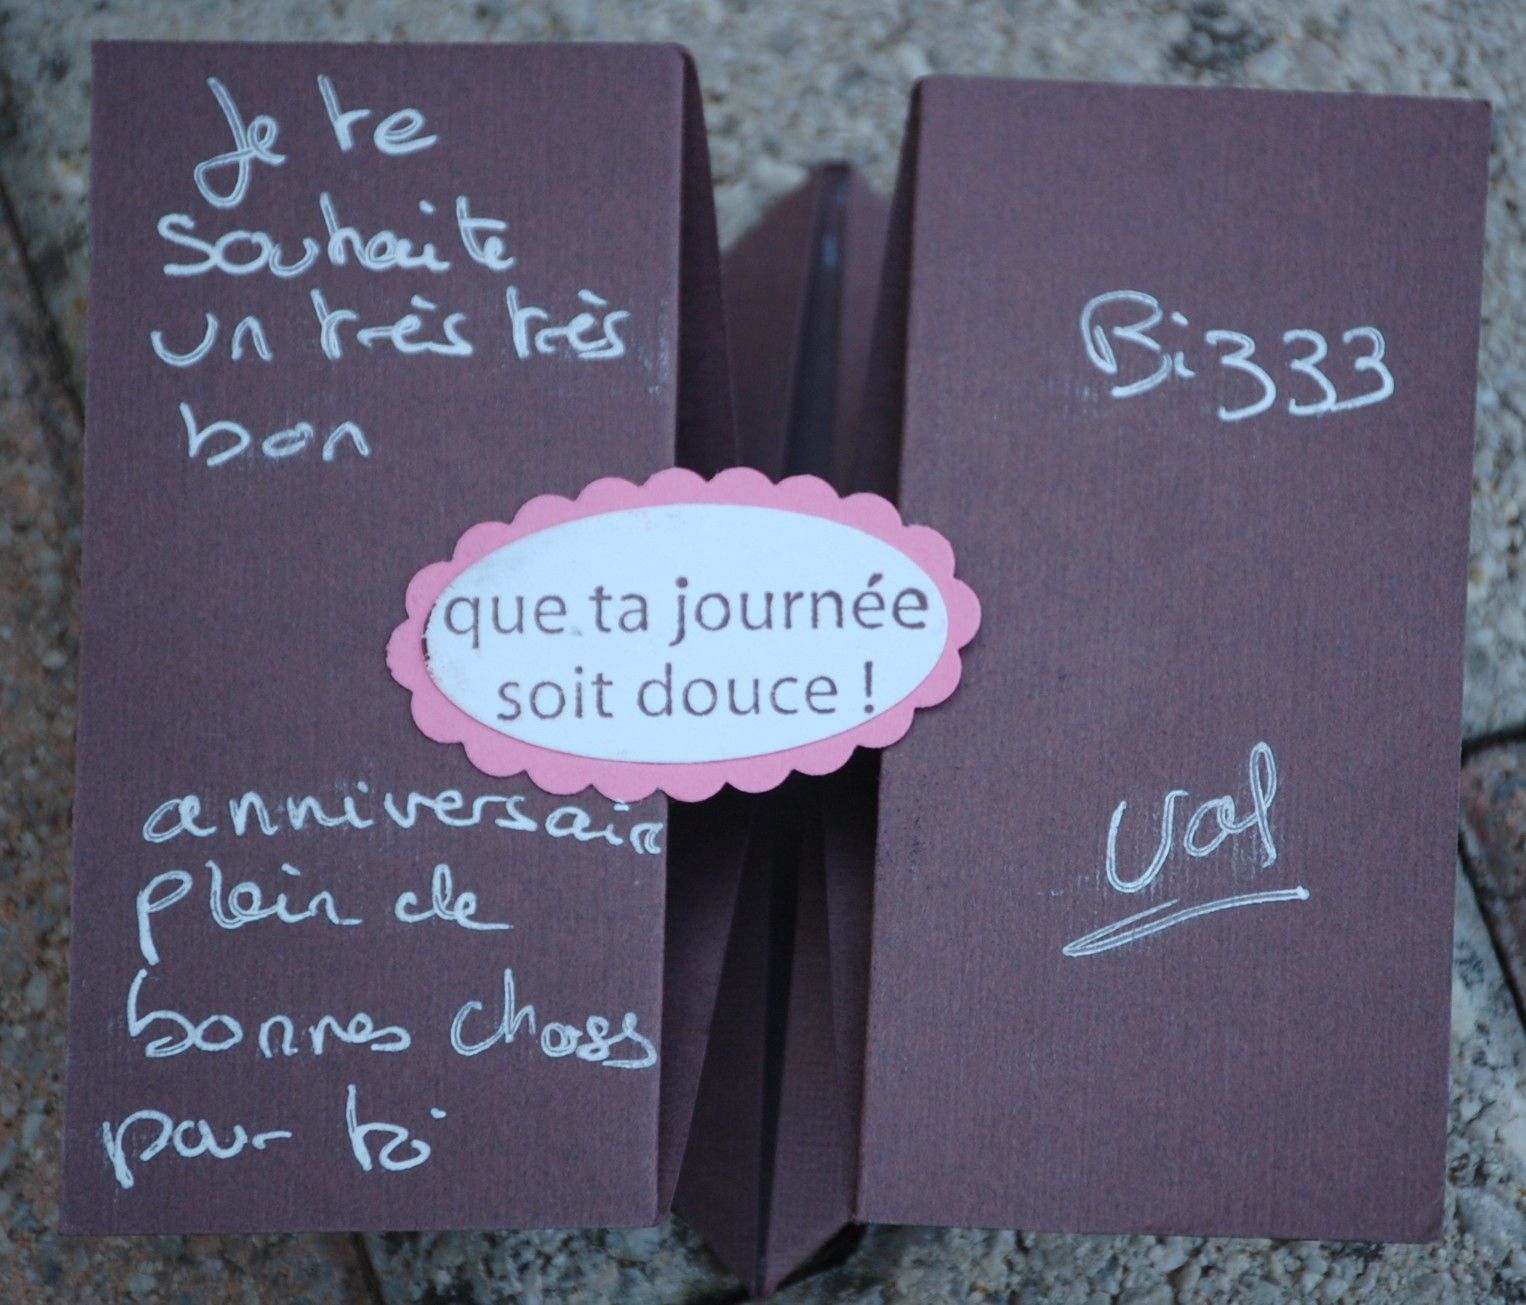 Je te
souhaite
un très très
bon
que ta journée
soit douce !
anniversaire
plein de
bonnes choses
pour toi
Bizzz
Val